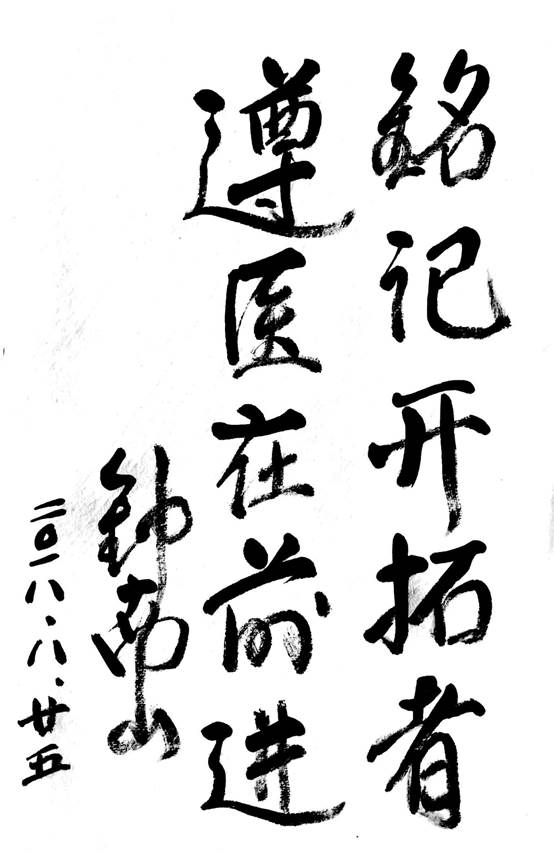 銘记开拓者
遵医在前进
钟南山
二〇一八.八.廿五